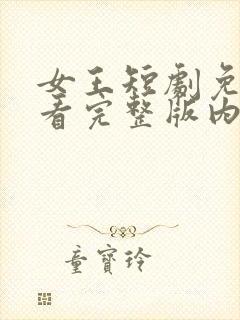 女王短劇免
看完整版内
童寶玲